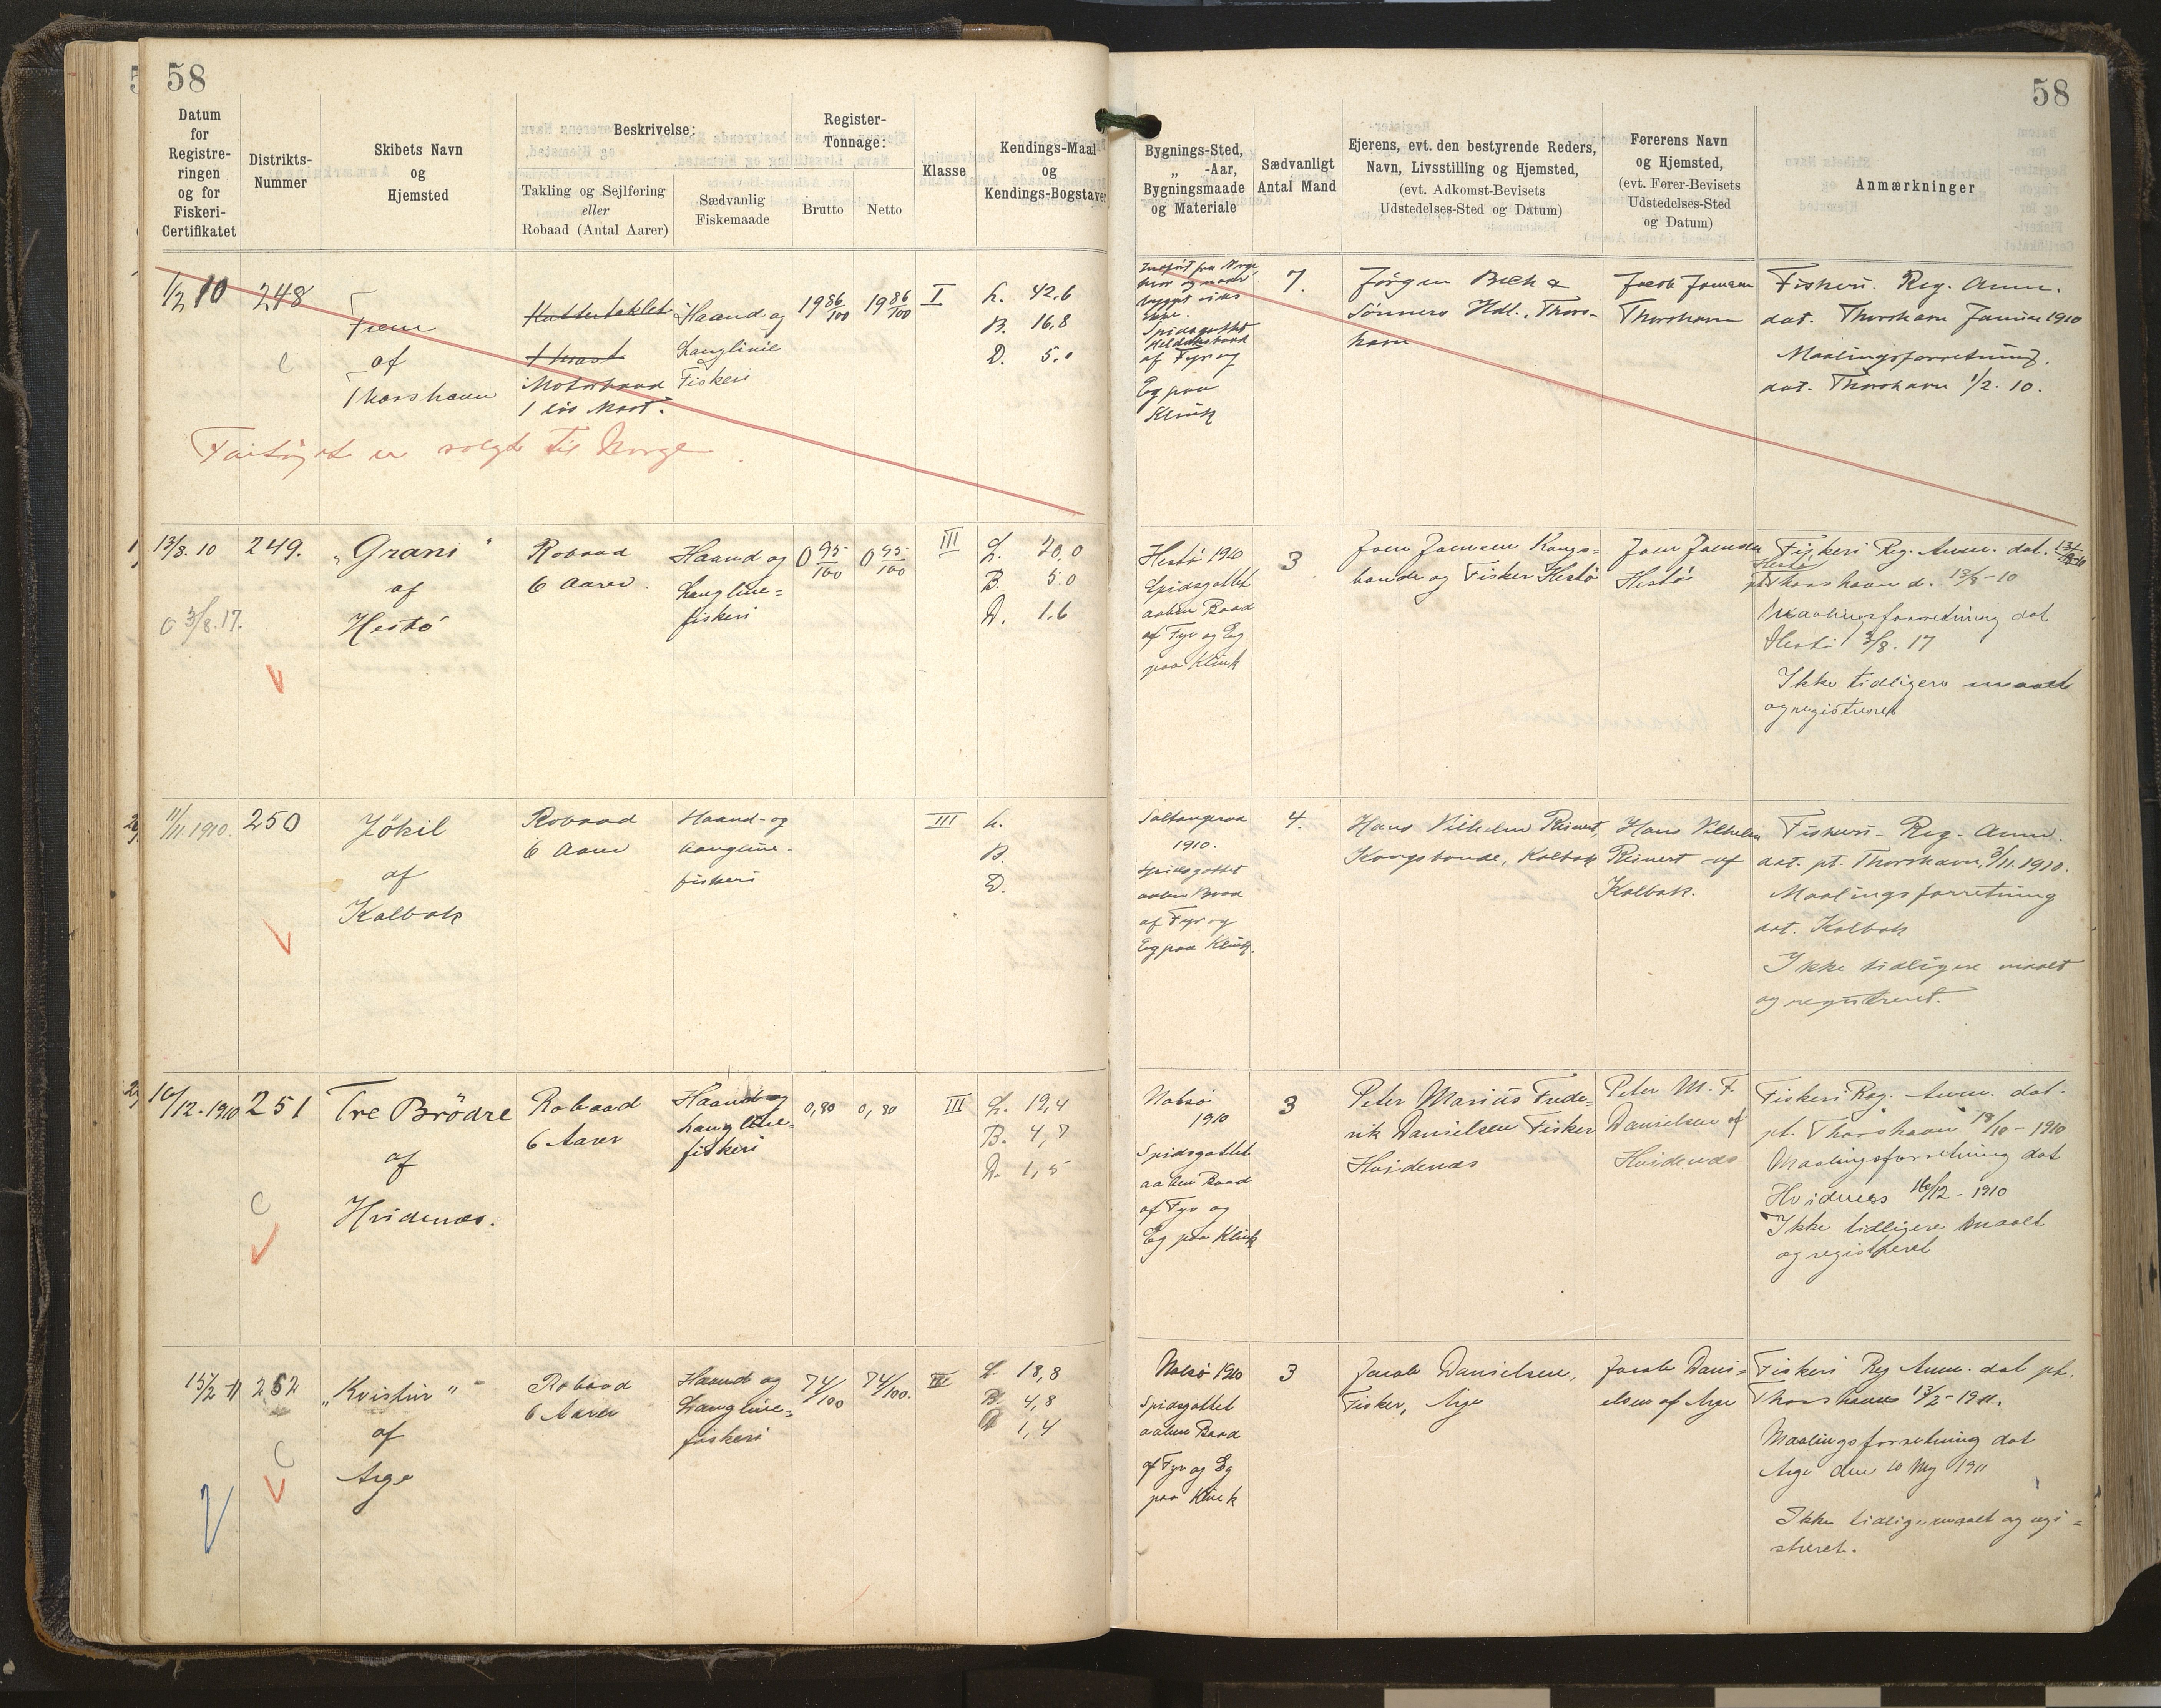 58
58
Datum
for
Registre-
ringen
og for
Fiskeri-
Certifikatet
Distrikts-
Nummer
Skibets Navn
og
Hjemsted
Beskrivelse:
Takling og Sejlføring
eller
Robaad (Antal Aarer)
Sædvanlig
Fiskemaade
Register-
Tonnage:
Brutto
Netto
Klasse
Kendings-Maal
og
Kendings-Bogstaver
Bygnings-Sted,
„ -Aar,
Bygningsmaade
og Materiale
Sædvanligt
Antal Mand
Ejerens, evt. den bestyrende Reders,
Navn, Livsstilling og Hjemsted,
(evt. Adkomst-Bevisets
Udstedelses-Sted og Datum)
Førerens Navn
og Hjemsted,
(evt. Fører-Bevisets
Udstedelses-Sted
og Datum)
Anmærkninger
1/2 10
248
Frem
af
Thorshavn
Kuttertaklet
1 Mast
Motorbaad
1 løs Mast.
Haand og
Langlinie
Fiskeri
19 86/100
19 86/100
I
L. 42,6
B. 16,8
D. 5,0
Spidsgattet
af Fyr og
Eg paa
Klink
7.
Jørgen Bech &
Sønners Hdl., Thors-
havn
Jacob Joensen
Thorshavn
Fiskeri. Reg. Anm.
dat. Thorshavn Januar 1910
Maalingsforretning.
dat. Thorshavn 1/2. 10.
Fartøjet er solgt til Norge
13/8. 10
249.
„Grani"
af
Hestö
Robaad
6 Aarer.
Haand og
Langline=
fiskeri
0 95/100
0 95/100
III
L. 20,0
B. 5,0
D. 1,6
C 3/8. 17.
Hestø 1910
Spidsgattet
aaben Baad
af Fyr og Eg
paa Klink
3
Joen Joensen Kongs=
bonde og Fisker Hestø
Joen Joensen
Hestø
Fiskeri Reg. Anm. dat.
Hestø
pt Thorshavn d. 13/8-10
Maalingsforretning dat
Hestø 3/8. 17
Ikke tidligere maalt
og registreret
11/11. 1910.
250
Jökil
af
Kolbak
Robaad
6 Aarer
Haand- og
Langline-
fiskeri
III
L.
B.
D.
Saltangeraa
1910.
Spidsgattet
aaben Baad
af Fyr og
Eg paa Klink.
4.
Hans Vilhelm Reinert,
Kongsbonde, Kolbak
Hans Vilhelm
Reinert af
Kolbak.
Fiskeri- Reg- Anm.
dat. pt. Thorshavn, 3/11. 1910.
Maalingsforretning
dat. Kolbak
Ikke tidligere maalt
og registreret.
16/12-1910
251
Tre Brödre
af
Hvidenæs.
Robaad
6 Aarer
Haand og
Langline=
fiskeri
0,80
0,80
III
L. 19,4
B. 4,7
D. 1,5
C
Nolsø
1910
Spidsgattet
aaben Baad
af Fyr og
Eg paa Klink
3
Peter Marius Frede=
rik Danielsen Fisker
Hvidenæs
Peter M. F.
Danielsen af
Hvidenæs
Fiskeri Reg. Anm. dat.
pt. Thorshavn 18/10-1910
Maalingsforretning dat
Hvidnæs 16/12-1910
Ikke tidligere maalt
og registreret
15/2-11
252
„Kvistur"
af
Arge
Robaad
6 Aarer
Haand og
Langline=
fiskeri
74/100
74/100.
III
L. 18,8
B. 4,8
D 1,4
C
Nolsø 1910
Spidsgattet
aaben Baad
af Fyr og Eg
paa Klink
3
Jacob Danielsen,
Fisker, Arge
Jacob Dani=
elsen af Arge
Fiskeri Reg Anm. dat pt.
Thorshavn 13/2-1911.
Maalingsforretning dat
Arge den 1911
Ikke tidligere maalt og regi=
streret.